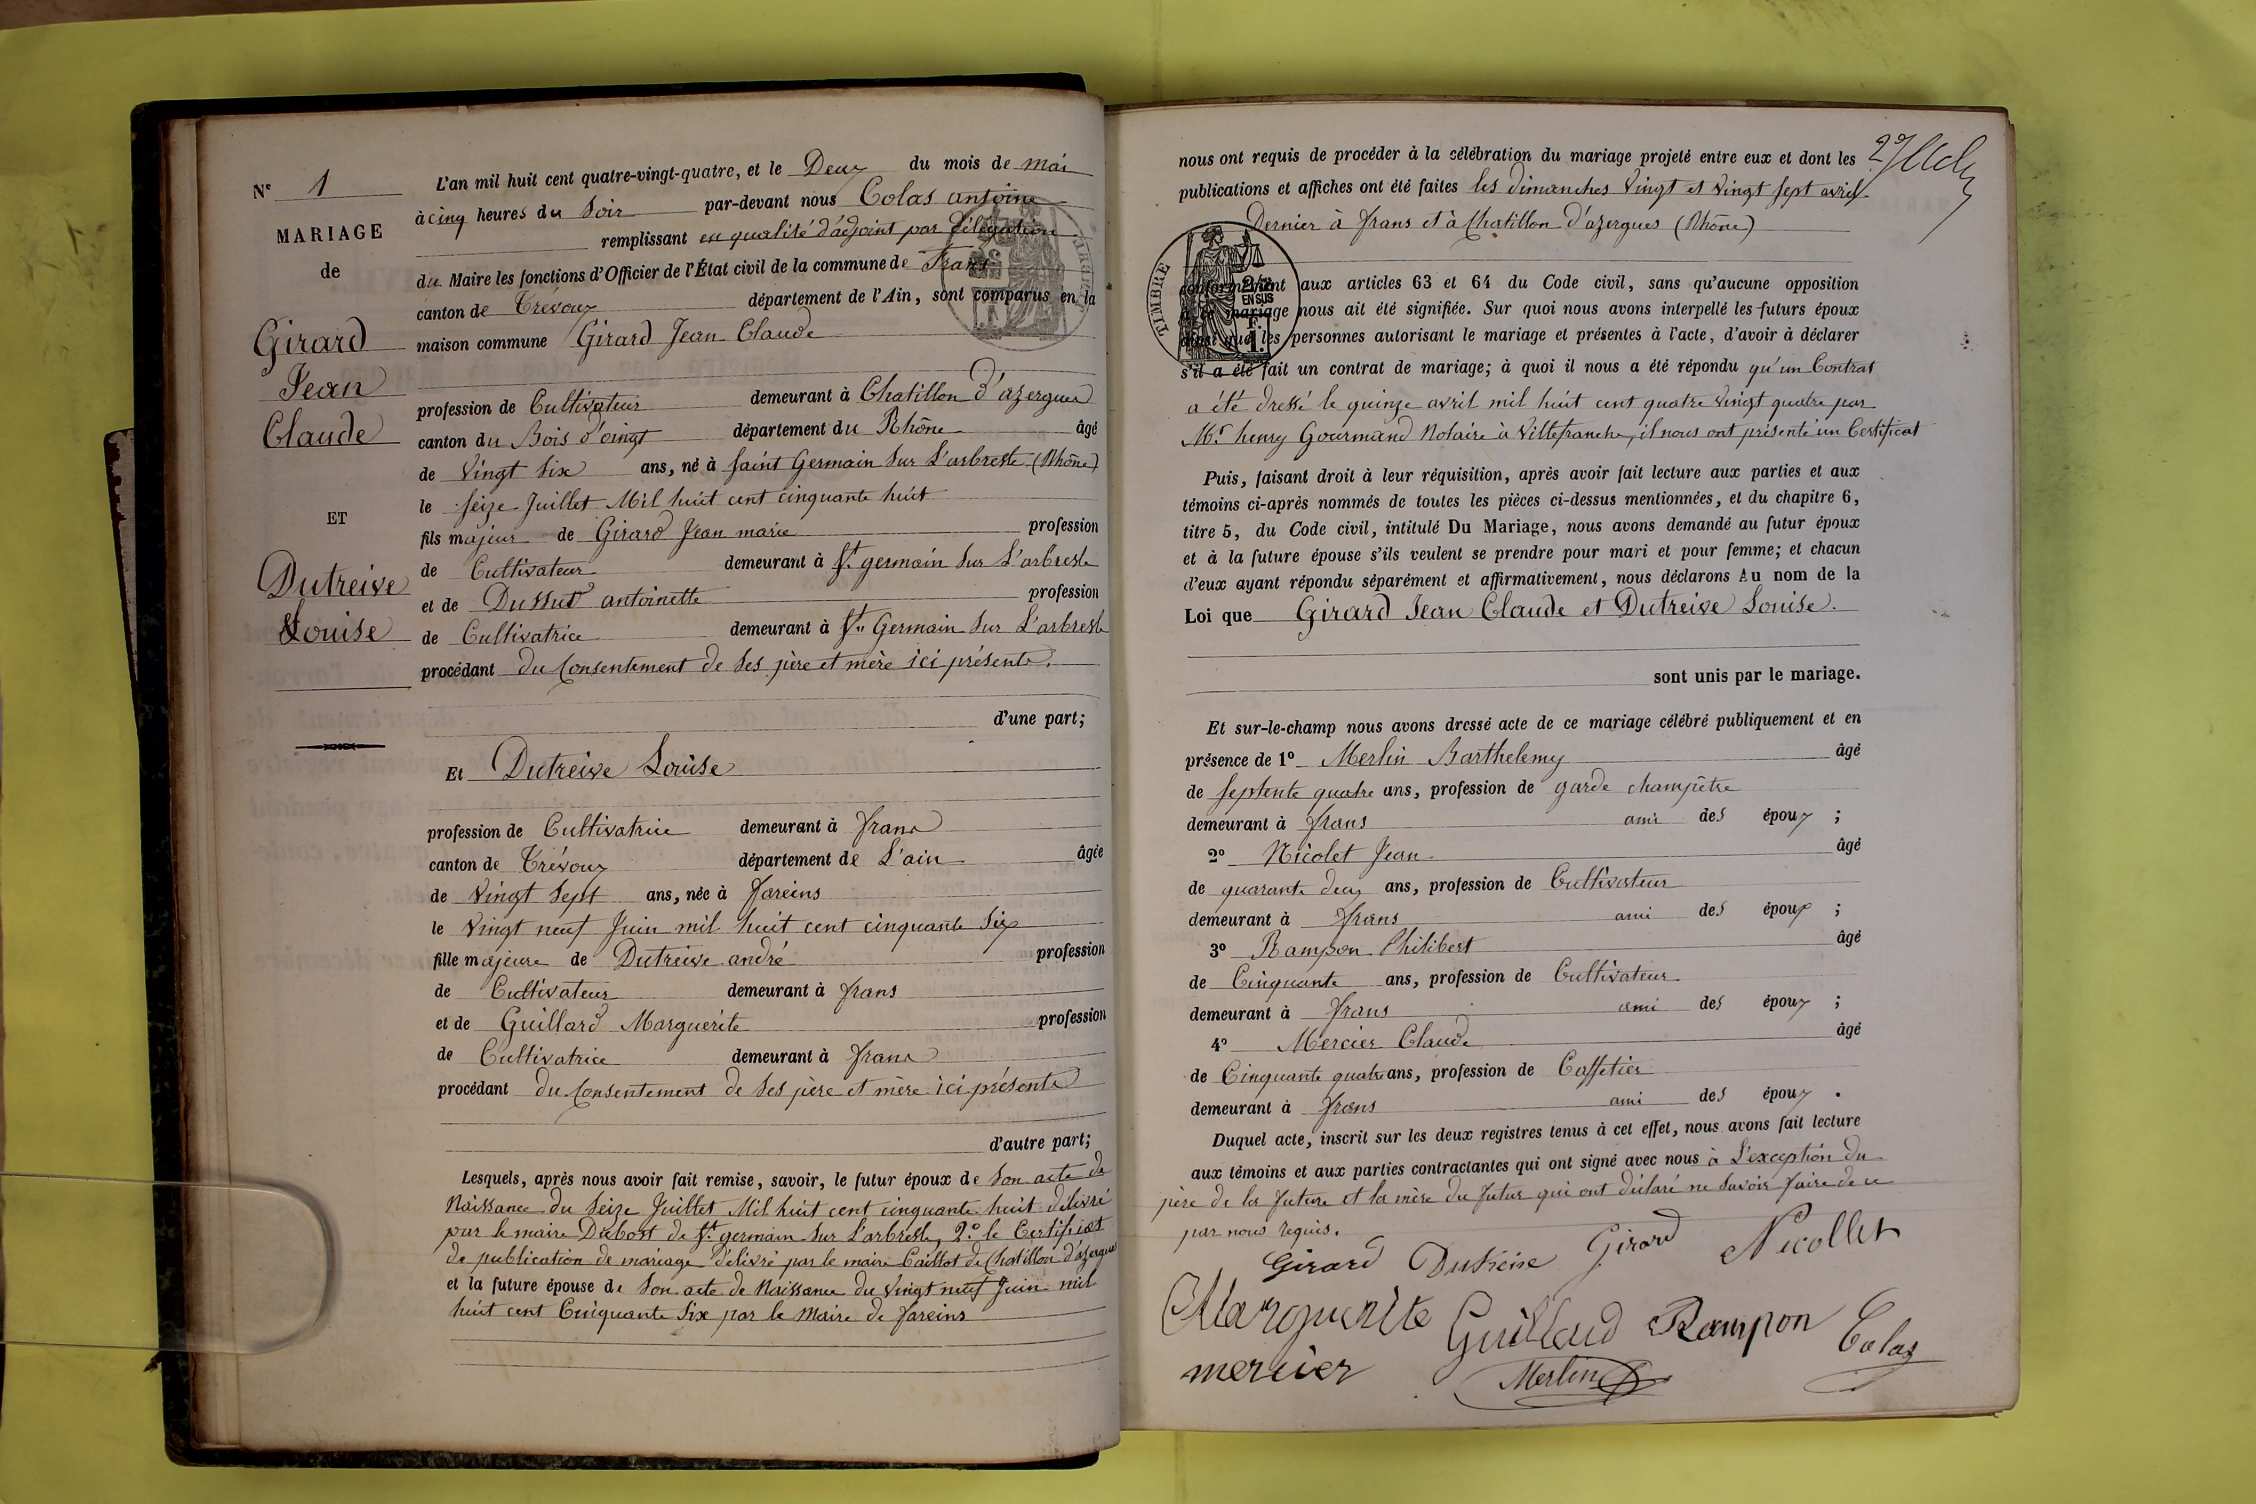 Nº 1
MARIAGE
de
Girard
Jean
Claude
ET
Dutreive
Louise
L'an mil huit cent quatre-vingt-quatre, et le Deux du mois de mai
à cinq heures du Soir par-devant nous Colas antoine
remplissant en qualité d'adjoint par délégation
du Maire les fonctions d'Officier de l'État civil de la commune de Frans
canton de Trévoux département de l'Ain, sont comparus en la
maison commune Girard Jean Claude
profession de Cultivateur demeurant à Chatillon d'azergues
canton du Bois d'oingt département du Rhône âgé
de Vingt Six ans, né à saint Germain Sur L'arbresle (Rhône)
le seize Juillet Mil huit cent cinquante huit
fils majeur de Girard Jean marie profession
de Cultivateur demeurant à St germain Sur L'arbresle
et de Dussud antoinette profession
de Cultivatrice demeurant à St Germain Sur L'arbresle
procédant du Consentement de Ses père et mère ici présents.
d'une part;
Et Dutreive Louise
profession de Cultivatrice demeurant à frans
canton de Trévoux département de L'ain âgée
de Vingt Sept ans, née à fareins
le Vingt neuf Juin mil huit cent cinquante Six
fille majeure de Dutreive andré profession
de Cultivateur demeurant à frans
et de Guillard Marguerite profession
de Cultivatrice demeurant à frans
procédant du Consentement de Ses père et mère ici présents
d'autre part;
Lesquels, après nous avoir fait remise, savoir, le futur époux de Son acte de
Naissance du Seize Juillet Mil huit cent cinquante huit délivré
par le maire Dubost de St germain Sur L'arbresle, 2º le Certificat
de publication de mariage délivré par le maire Caillot de Chatillon d'azergues
et la future épouse de Son acte de Naissance du Vingt neuf Juin mil
huit cent Cinquante Six par le Maire de fareins
nous ont requis de procéder à la célébration du mariage projeté entre eux et dont les
publications et affiches ont été faites les dimanches Vingt et Vingt sept avril
Dernier à frans et à Chatillon d'azergues (Rhône)
TIMBRE
2/10
EN SUS
conformément aux articles 63 et 64 du Code civil, sans qu'aucune opposition
à ce mariage nous ait été signifiée. Sur quoi nous avons interpellé les futurs époux
ainsi que les personnes autorisant le mariage et présentes à l'acte, d'avoir à déclarer
s'il a été fait un contrat de mariage; à quoi il nous a été répondu qu'un Contrat
a été dressé le quinze avril mil huit cent quatre Vingt quatre par
Mr henry Gourmand Notaire à Villefranche, il nous ont présenté un Certificat
Puis, faisant droit à leur réquisition, après avoir fait lecture aux parties et aux
témoins ci-après nommés de toutes les pièces ci-dessus mentionnées, et du chapitre 6,
titre 5, du Code civil, intitulé Du Mariage, nous avons demandé au futur époux
et à la future épouse s'ils veulent se prendre pour mari et pour femme; et chacun
d'eux ayant répondu séparément et affirmativement, nous déclarons Au nom de la
Loi que Girard Jean Claude et Dutreive Louise.
sont unis par le mariage.
Et sur-le-champ nous avons dressé acte de ce mariage célébré publiquement et en
présence de 1º Merlin Barthelemy âgé
de septente quatre ans, profession de garde champêtre
demeurant à frans ami des époux ;
2º Nicolet Jean âgé
de quarante deux ans, profession de Cultivateur
demeurant à frans ami des époux ;
3º Rampon Philibert âgé
de Cinquante ans, profession de Cultivateur
demeurant à frans ami des époux ;
4º Mercier Claude âgé
de Cinquante quatre ans, profession de Caffetier
demeurant à frans ami des époux .
Duquel acte, inscrit sur les deux registres tenus à cet effet, nous avons fait lecture
aux témoins et aux parties contractantes qui ont signé avec nous à L'exception du
père de la future et la mère du futur qui ont déclaré ne Savoir faire de ce
par nous requis.
Girard Dutreive Girard Nicollet
Marguerite Guillard Rampon Colas
mercier Merlin